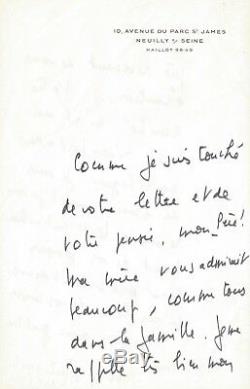 10, AVENUE DU PARC ST JAMES
NEUILLY S/ SEINE
MAILLOT 98-49
Comme je suis touché
de votre lettre et de
votre pensée, mon Père!
Ma mère vous admirait
beaucoup, comme tous
dans la famille. Je me
rappelle très bien mon